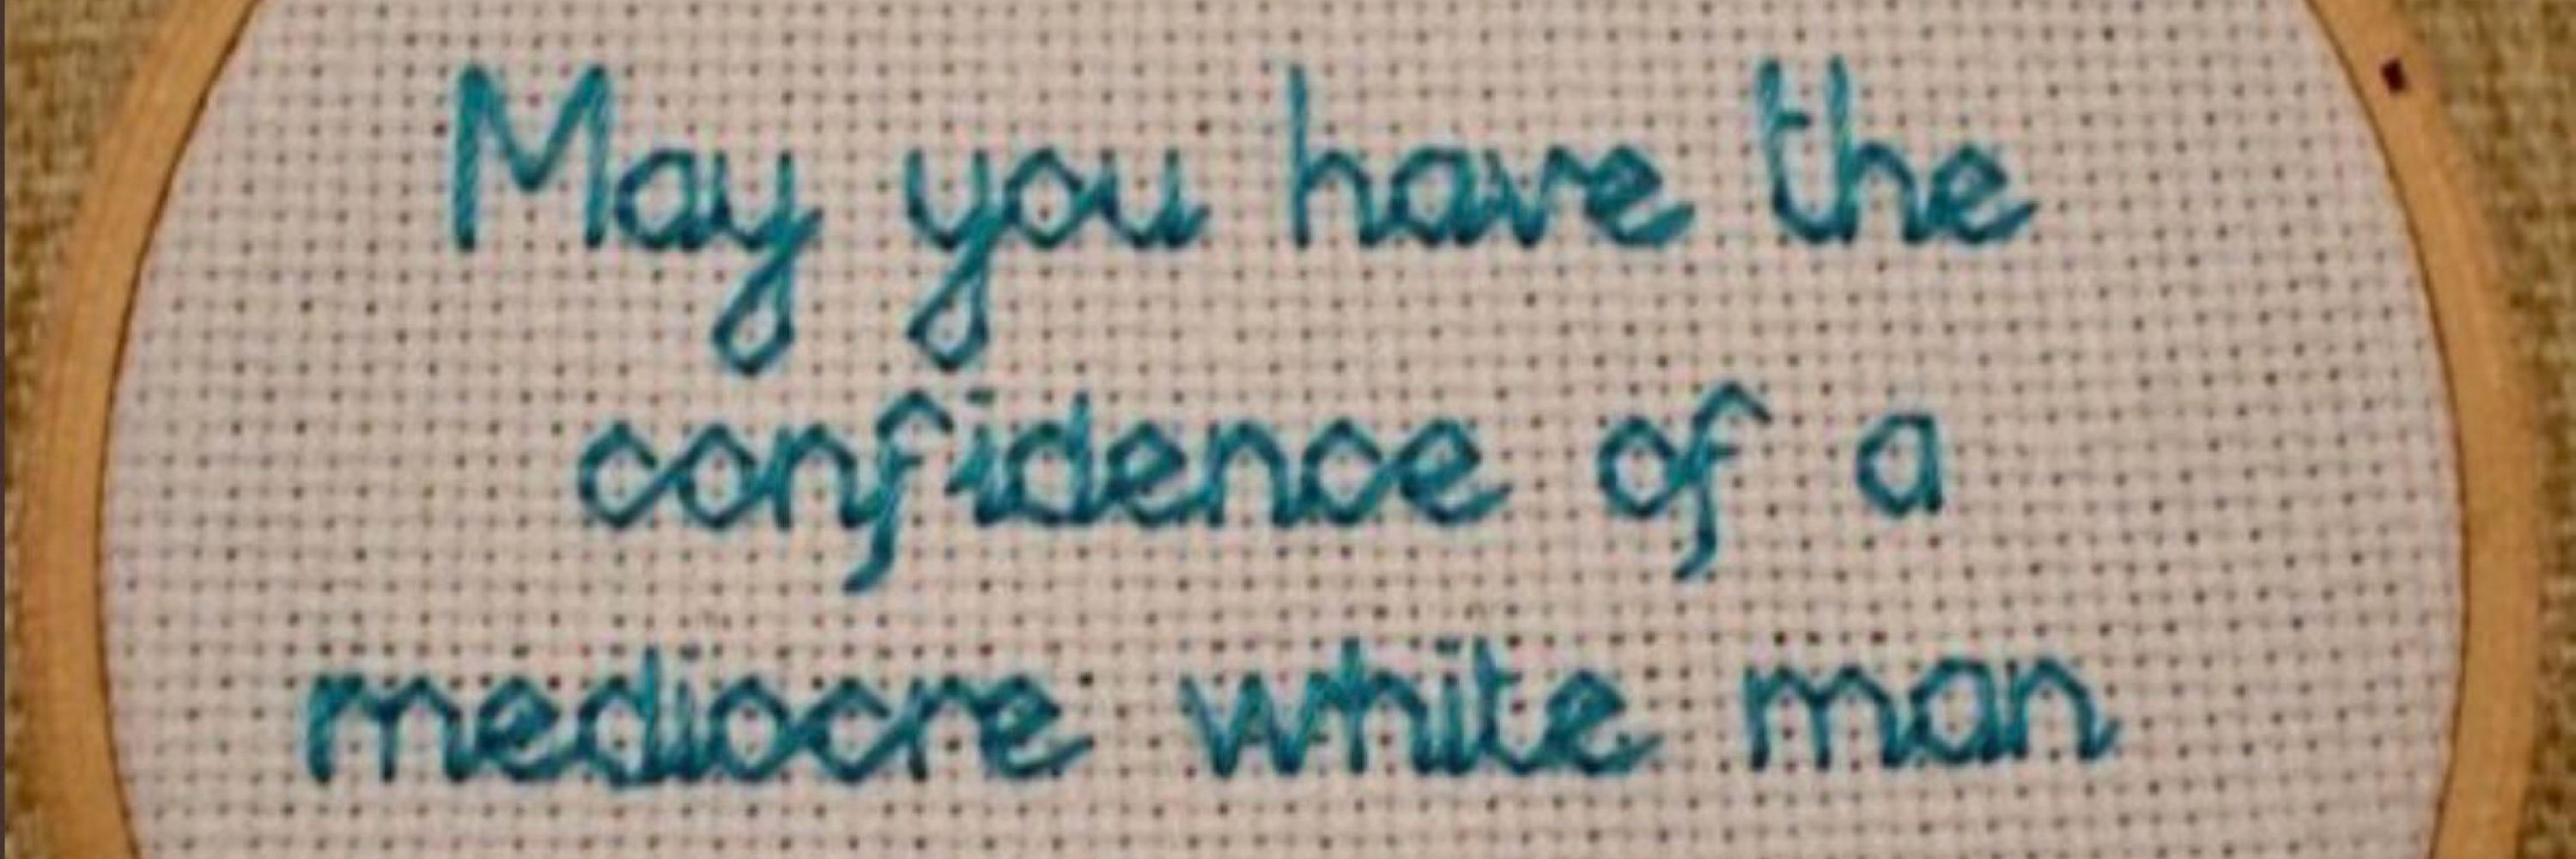 May you have the
confidence of a
mediocre white man